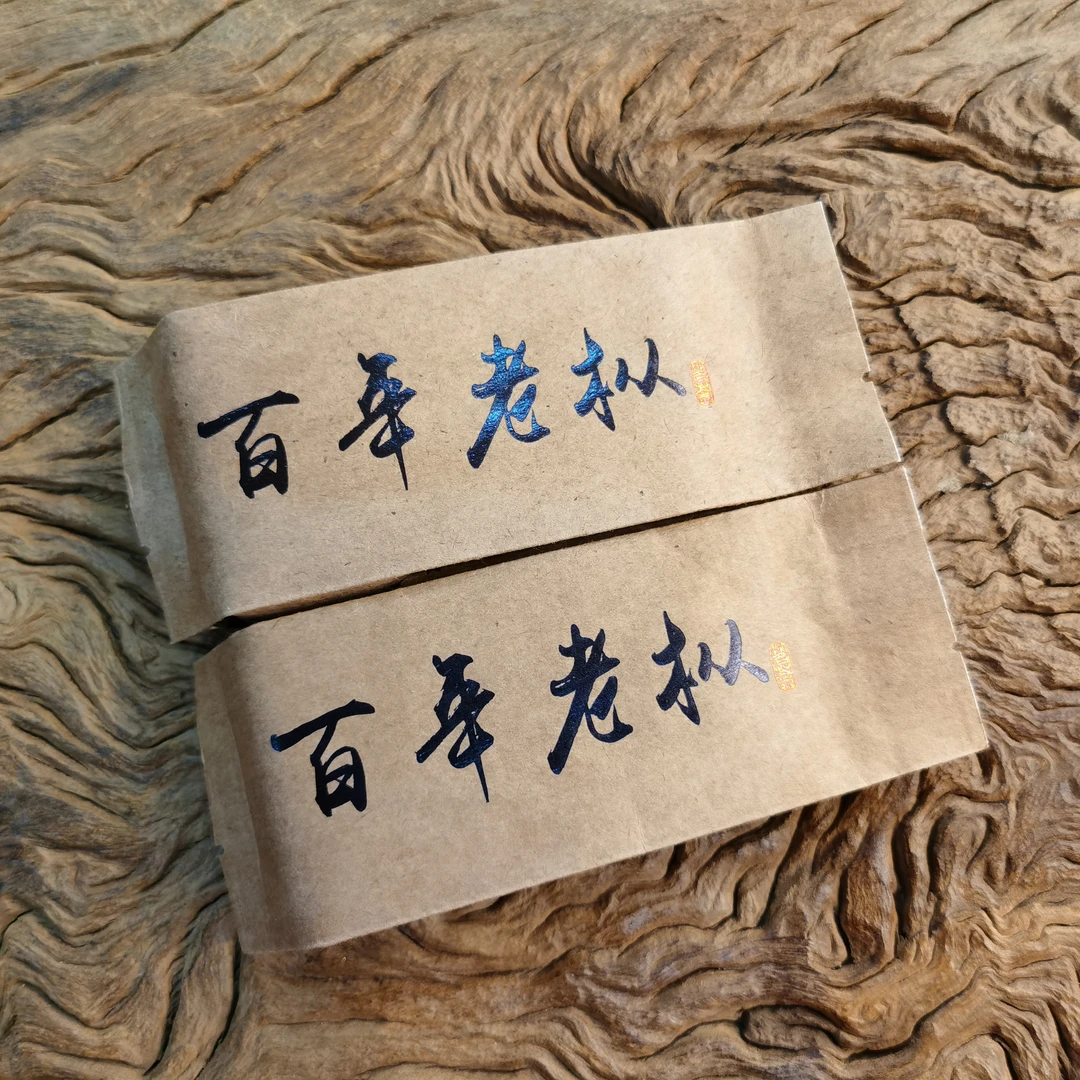 百年老枞
百年老枞